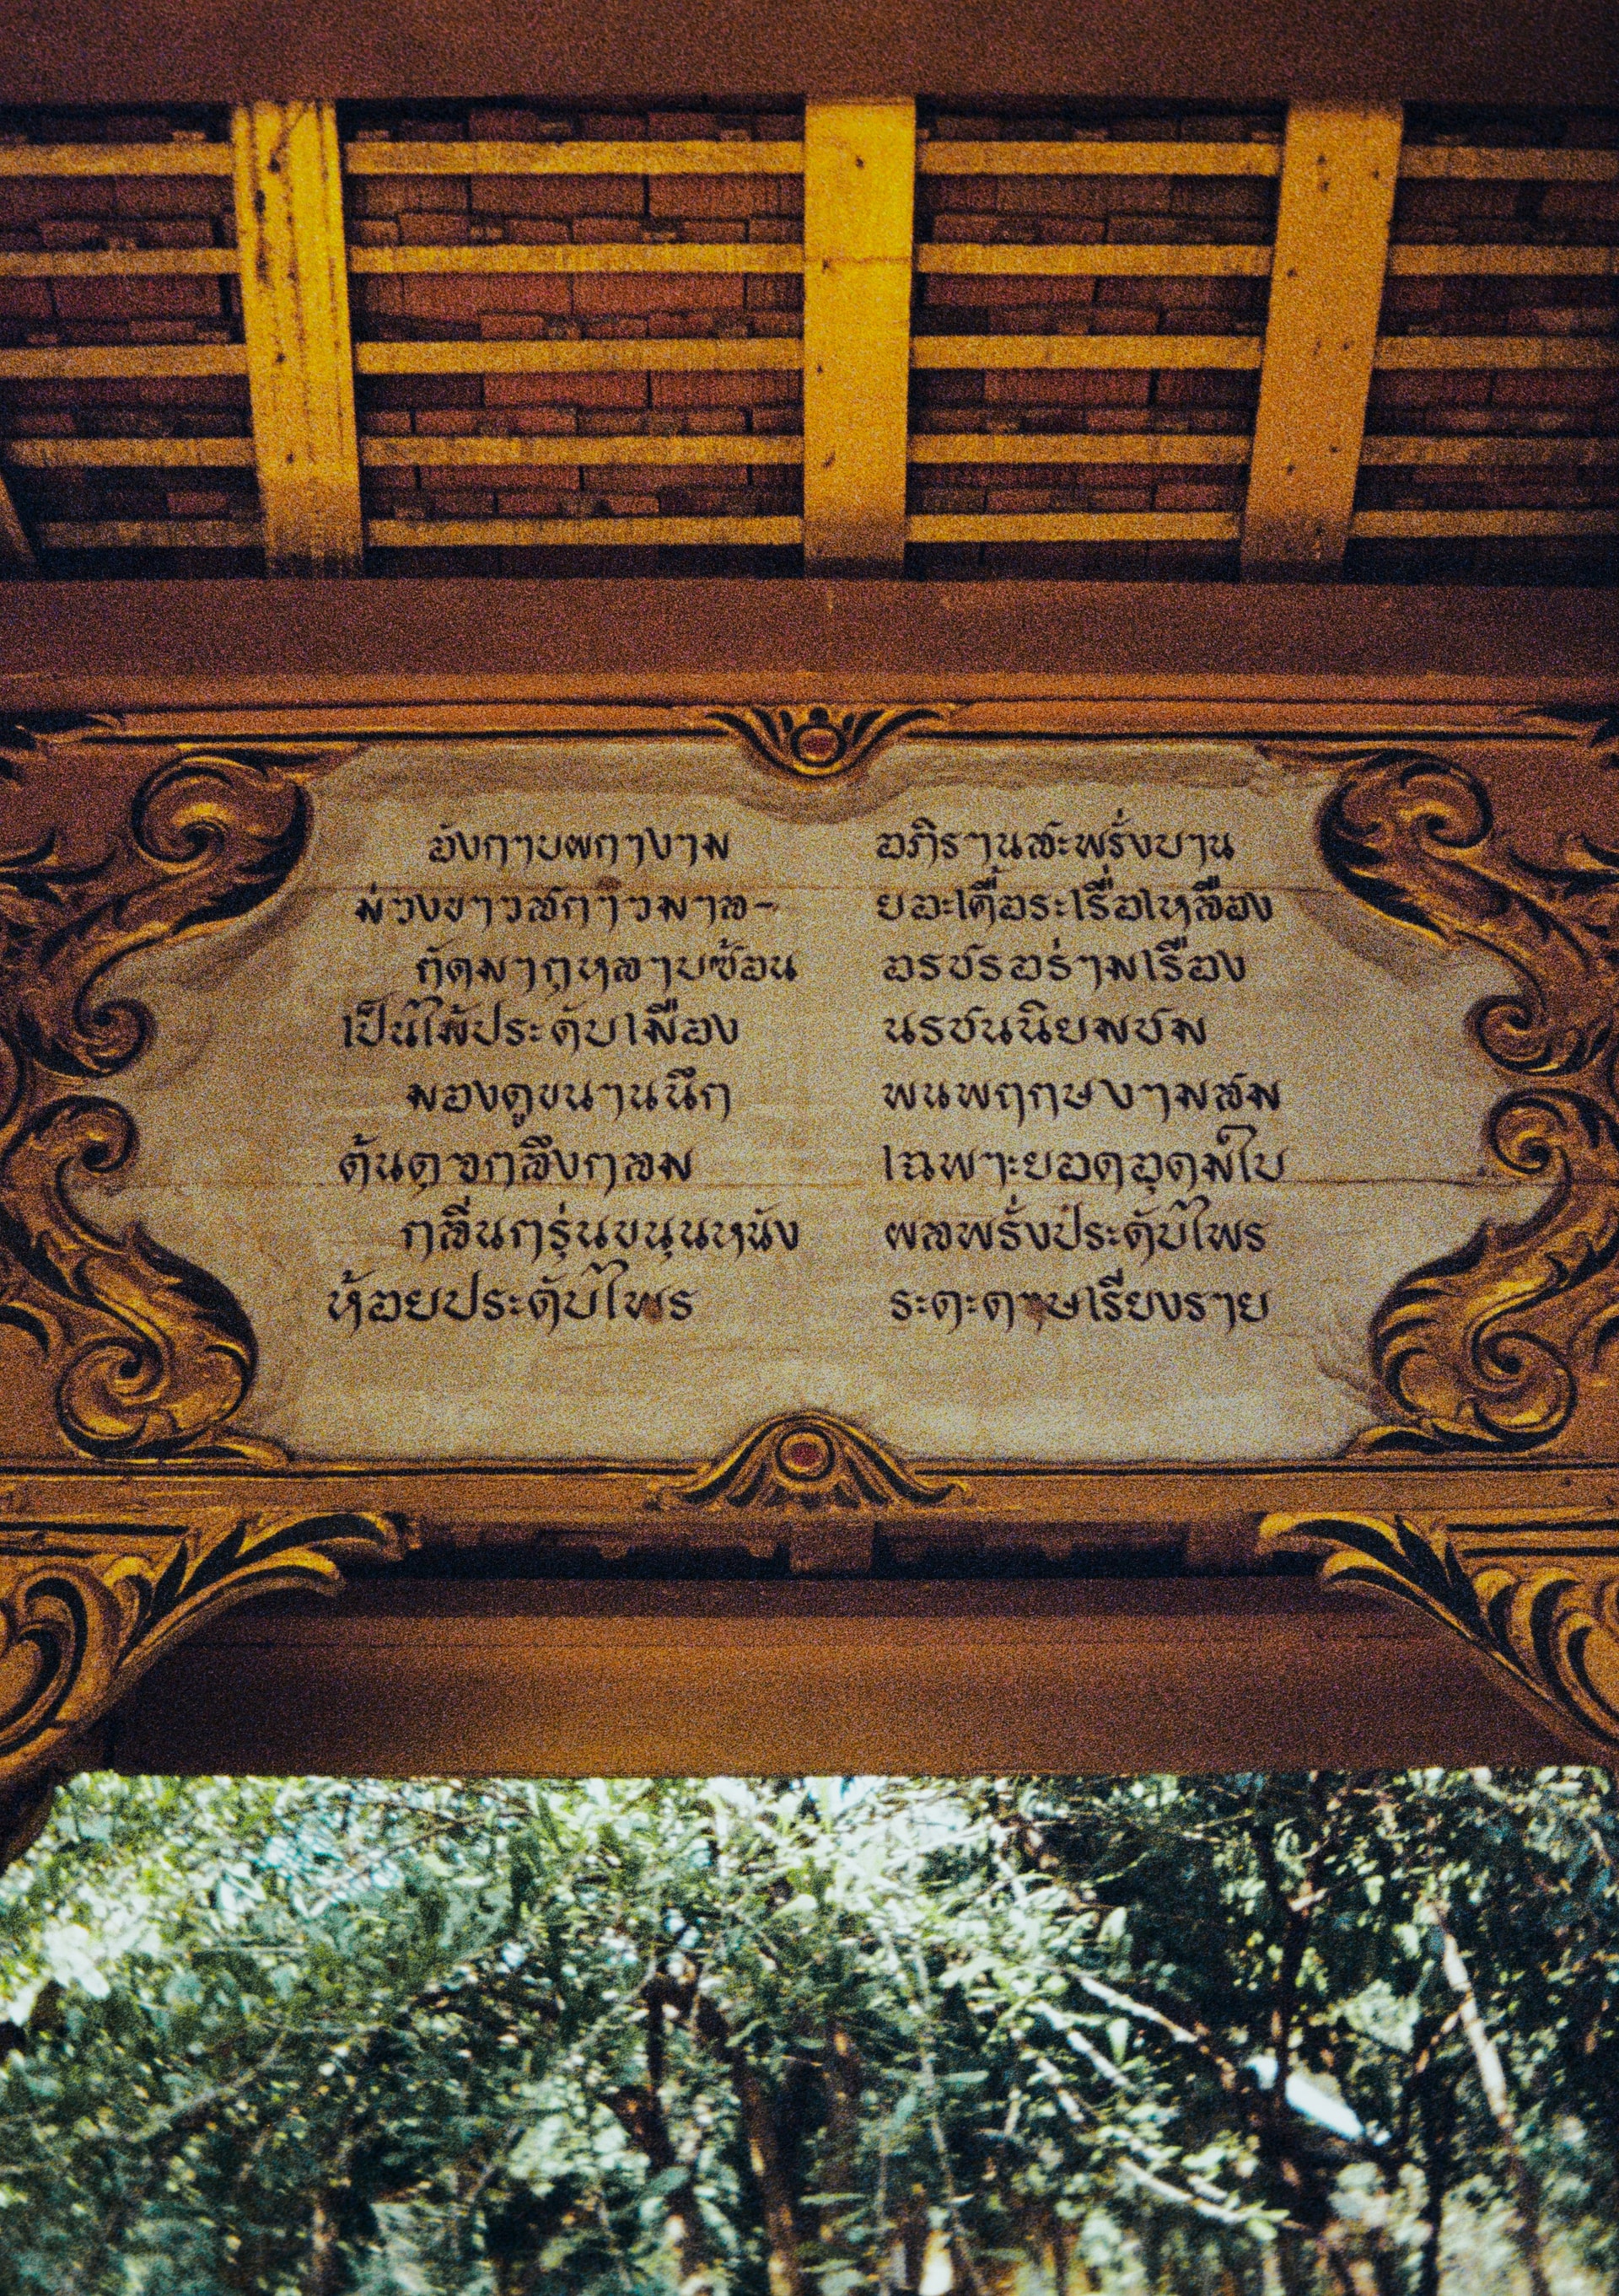 อังกาบผกางาม อภิรานสะพรั่งบาน
ม่วงขาวสกาวมาล- ยอะเคื้อระเรื่อเหลือง
ถัดมากุหลาบซ้อน อรชรอร่ามเรือง
เป็นไม้ประดับเมือง นรชนนิยมชม
มองดูขนานนึก พนพฤกษงามสม
ต้นดุจกลึงกลม เฉพาะยอดอุดมใบ
กลิ่นกรุ่นขนุนหนัง ผลพรั่งประดับไพร
ห้อยประดับไพร ระดะดาษเรียงราย